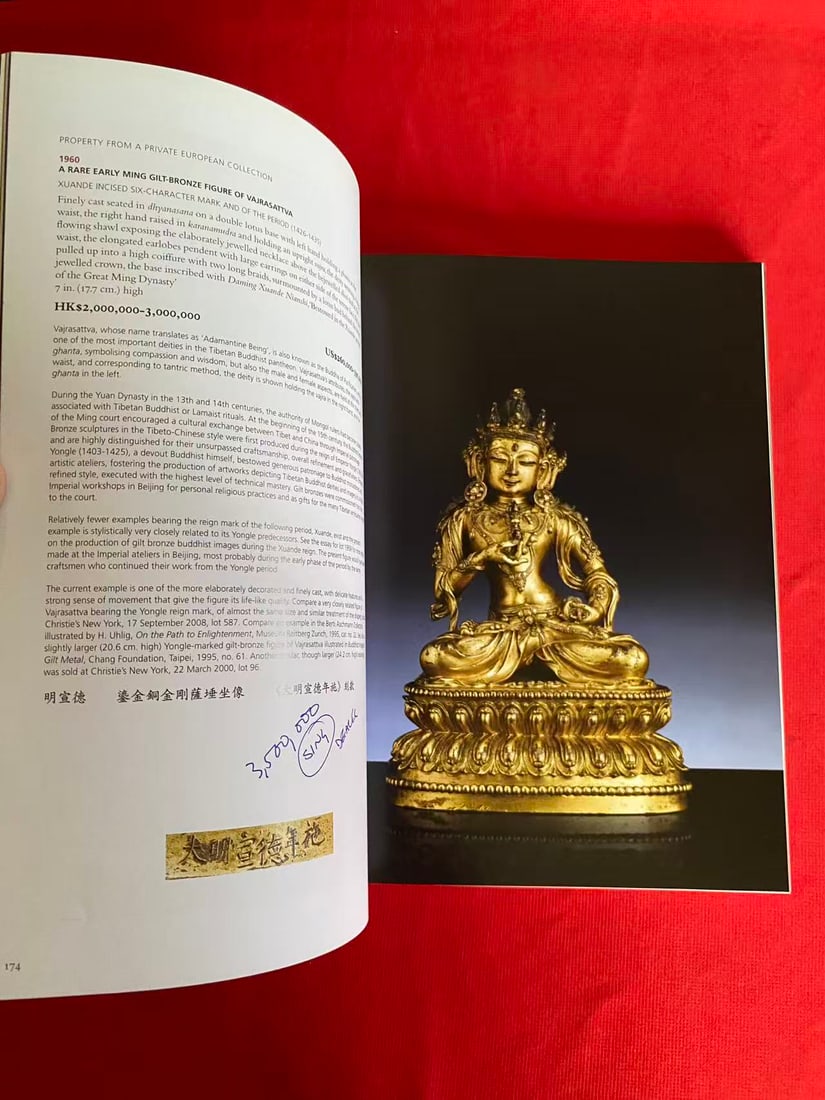 PROPERTY FROM A PRIVATE EUROPEAN COLLECTION
1960
A RARE EARLY MING GILT-BRONZE FIGURE OF VAJRASATTVA
XUANDE INCISED SIX-CHARACTER MARK AND OF THE PERIOD (1426-1435)
Finely cast seated in dhyanasana on a double lotus base with left hand holding a
waist, the right hand raised in karanamudra and holding an upright
flowing shawl exposing the elaborately jewelled necklace above the
waist, the elongated earlobes pendent with large earrings on either side of the
pulled up into a high coiffure with two long braids, surmounted by a
jewelled crown, the base inscribed with Daming Xuande Nianshi, 'Bestowed in the
of the Great Ming Dynasty'
7 in. (17.7 cm.) high
HK$2,000,000-3,000,000
Vajrasattva, whose name translates as 'Adamantine Being', is also known as the Buddha of
one of the most important deities in the Tibetan Buddhist pantheon. Vajrasattva's attributes, the
ghanta, symbolising compassion and wisdom, but also the male and female aspects, are held
waist, and corresponding to tantric method, the deity is shown holding the vajra in the right
ghanta in the left.
During the Yuan Dynasty in the 13th and 14th centuries, the authority of Mongol rulers had
associated with Tibetan Buddhist or Lamaist rituals. At the beginning of the 15th century, the
of the Ming court encouraged a cultural exchange between Tibet and China through imperial
Bronze sculptures in the Tibeto-Chinese style were first produced during the reign of Emperor
and are highly distinguished for their unsurpassed craftsmanship, overall refinement and
Yongle (1403-1425), a devout Buddhist himself, bestowed generous patronage to Buddhist
artistic ateliers, fostering the production of artworks depicting Tibetan Buddhist deities and
refined style, executed with the highest level of technical mastery. Gilt bronzes were commissioned
Imperial workshops in Beijing for personal religious practices and as gifts for the many Tibetan
to the court.
Relatively fewer examples bearing the reign mark of the following period, Xuande, exist and the present
example is stylistically very closely related to its Yongle predecessors. See the essay for lot
on the production of gilt bronze buddhist images during the Xuande reign. The present figure would
made at the Imperial ateliers in Beijing, most probably during the early phase of the period by the same
craftsmen who continued their work from the Yongle period.
The current example is one of the more elaborately decorated and finely cast, with delicate features and
strong sense of movement that give the figure its life-like quality. Compare a very closely related figure of
Vajrasattva bearing the Yongle reign mark, of almost the same size and similar treatment of the
Christie's New York, 17 September 2008, lot 587. Compare an example in the Berti Aschmann Collection
illustrated by H. Uhlig, On the Path to Enlightenment, Museum Rietberg Zurich, 1995, cat no.
slightly larger (20.6 cm. high) Yongle-marked gilt-bronze figure of Vajrasattva illustrated in Buddhist Images in
Gilt Metal, Chang Foundation, Taipei, 1995, no. 61. Another similar, though larger (24.2 cm. high)
was sold at Christie's New York, 22 March 2000, lot 96.
明宣德 鎏金銅金剛薩埵坐像 《大明宣德年施》刻款
3,500,000
SING
大明宣德年施
174